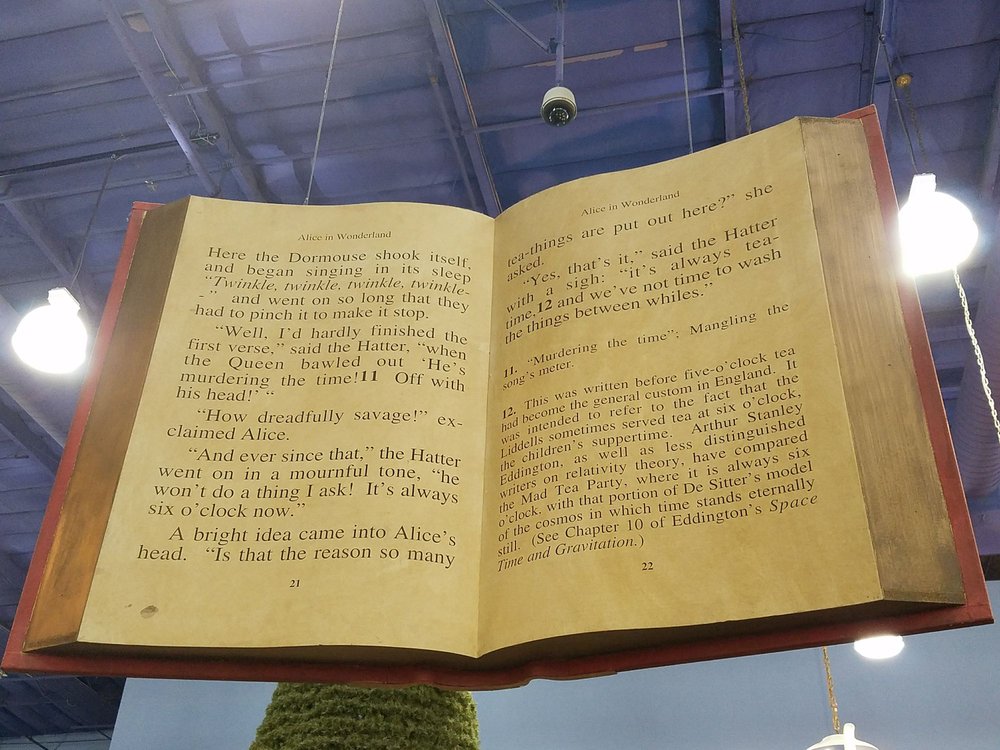 Alice in Wonderland
Here the Dormouse shook itself,
and began singing in its sleep
"Twinkle, twinkle, twinkle, twinkle-
-" and went on so long that they
had to pinch it to make it stop.
"Well, I'd hardly finished the
first verse," said the Hatter, "when
the Queen bawled out 'He's
murdering the time!11 Off with
his head!' "
"How dreadfully savage!" ex-
claimed Alice.
"And ever since that," the Hatter
went on in a mournful tone, "he
won't do a thing I ask! It's always
six o'clock now."
A bright idea came into Alice's
head. "Is that the reason so many
21
Alice in Wonderland
tea-things are put out here?" she
asked.
"Yes, that's it," said the Hatter
with a sigh: "it's always tea-
time,12 and we've not time to wash
the things between whiles."
11. "Murdering the time"; Mangling the
song's meter.
12. This was written before five-o'clock tea
had become the general custom in England. It
was intended to refer to the fact that the
Liddells sometimes served tea at six o'clock,
the children's suppertime. Arthur Stanley
Eddington, as well as less distinguished
writers on relativity theory, have compared
the Mad Tea Party, where it is always six
o'clock, with that portion of De Sitter's model
of the cosmos in which time stands eternally
still. (See Chapter 10 of Eddington's Space
Time and Gravitation.)
22